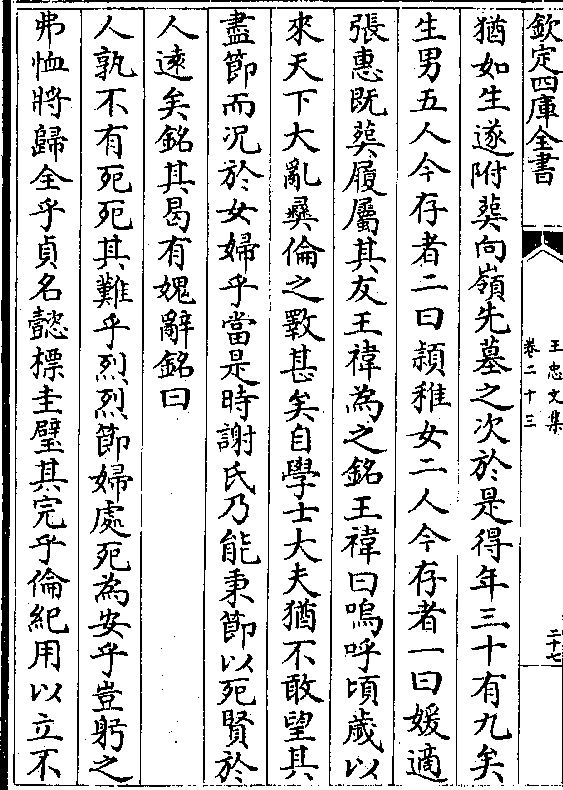 欽定四庫全書
王忠文集
卷二十三
二十七
猶如生遂附葬向嶺先墓之次於是得年三十有九矣
生男五人今存者二曰頴稚女二人今存者一曰媛適
張惠既葬履屬其友王禕為之銘王禕曰嗚呼頃歲以
來天下大亂彛倫之斁甚矣自學士大夫猶不敢望其
盡節而况於女婦乎當是時謝氏乃能秉節以死賢於
人逺矣銘其曷有媿辭銘曰
人孰不有死死其難乎烈烈節婦處死為安乎豈躬之
弗恤將歸全乎貞名懿標圭璧其完乎倫紀用以立不